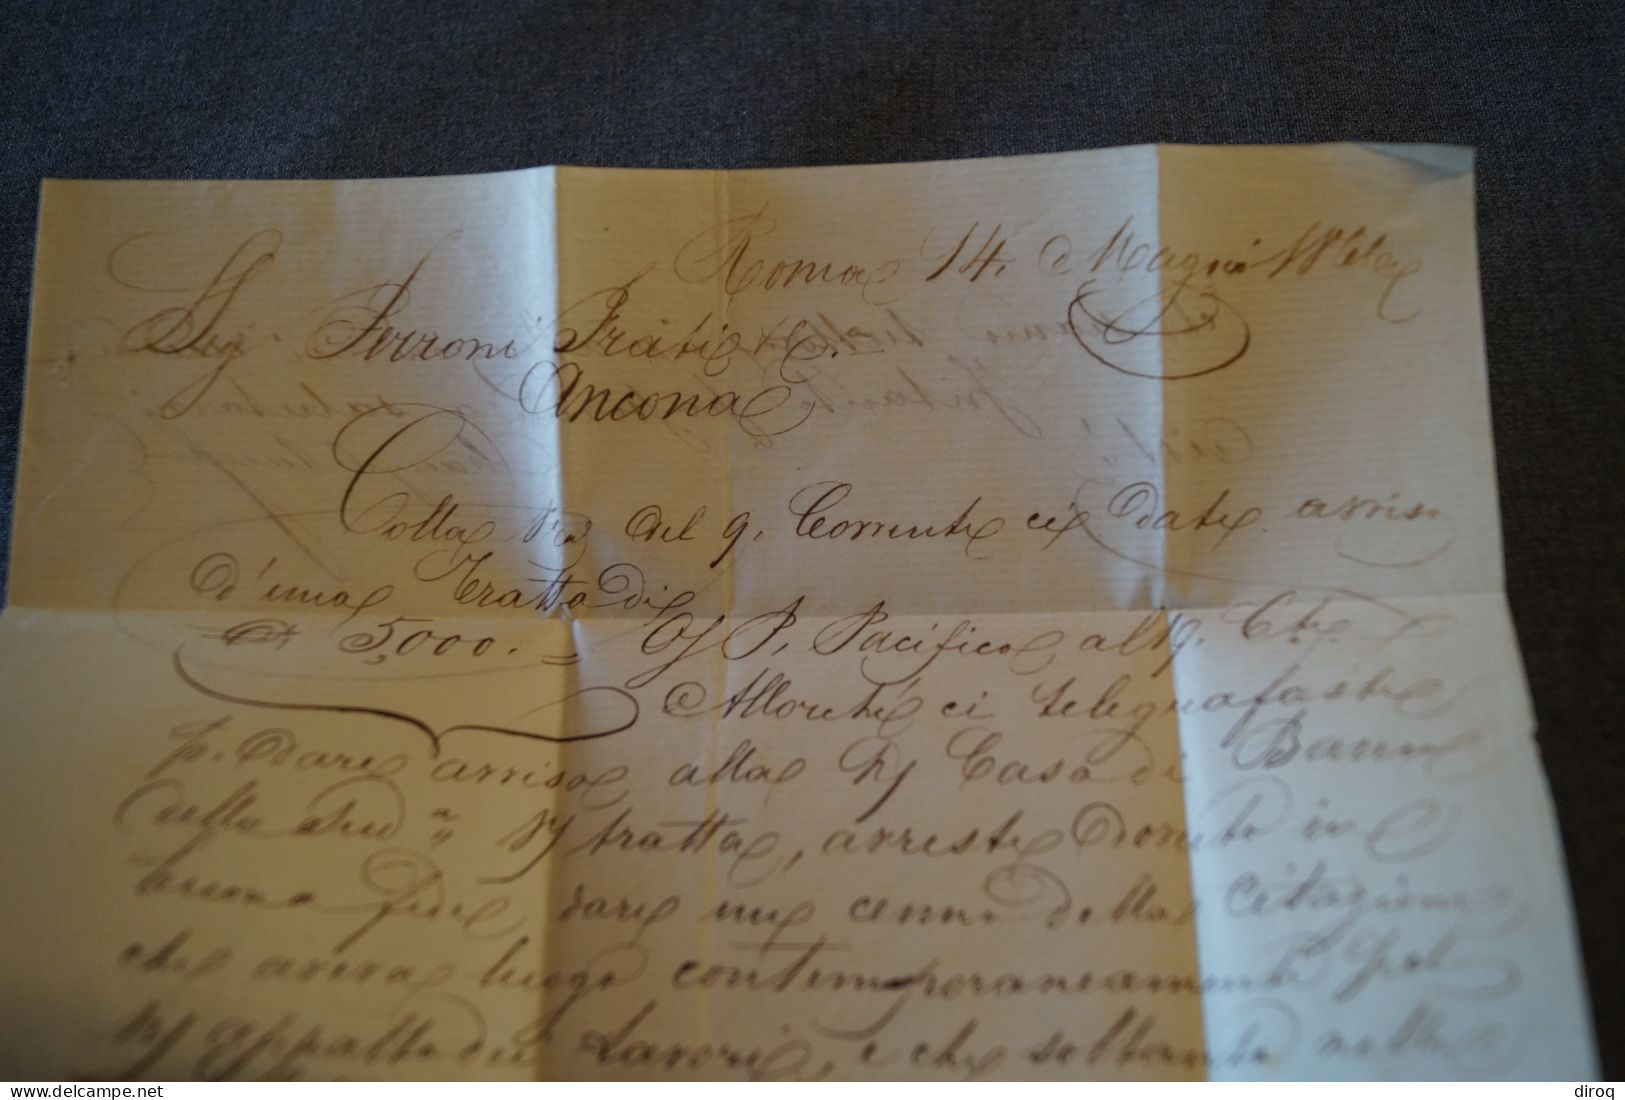 Roma 14. Maggio
Sig Ferroni Frat. e C.
Ancona
Colla vra del 9. Corrente ci date avviso
d'una tratta di
5,000. = P. Pacifico al 19. Cte.
Allorchè ci telegrafaste
p. dare avviso alla Casa di
della sud.a tratta, avreste dovuto in
buona fede, dare un cenno della citazione
che aveva luogo contemporaneamente pel
appalto dei Lavori, e che soltanto nella
www.delcampe.net
diroq